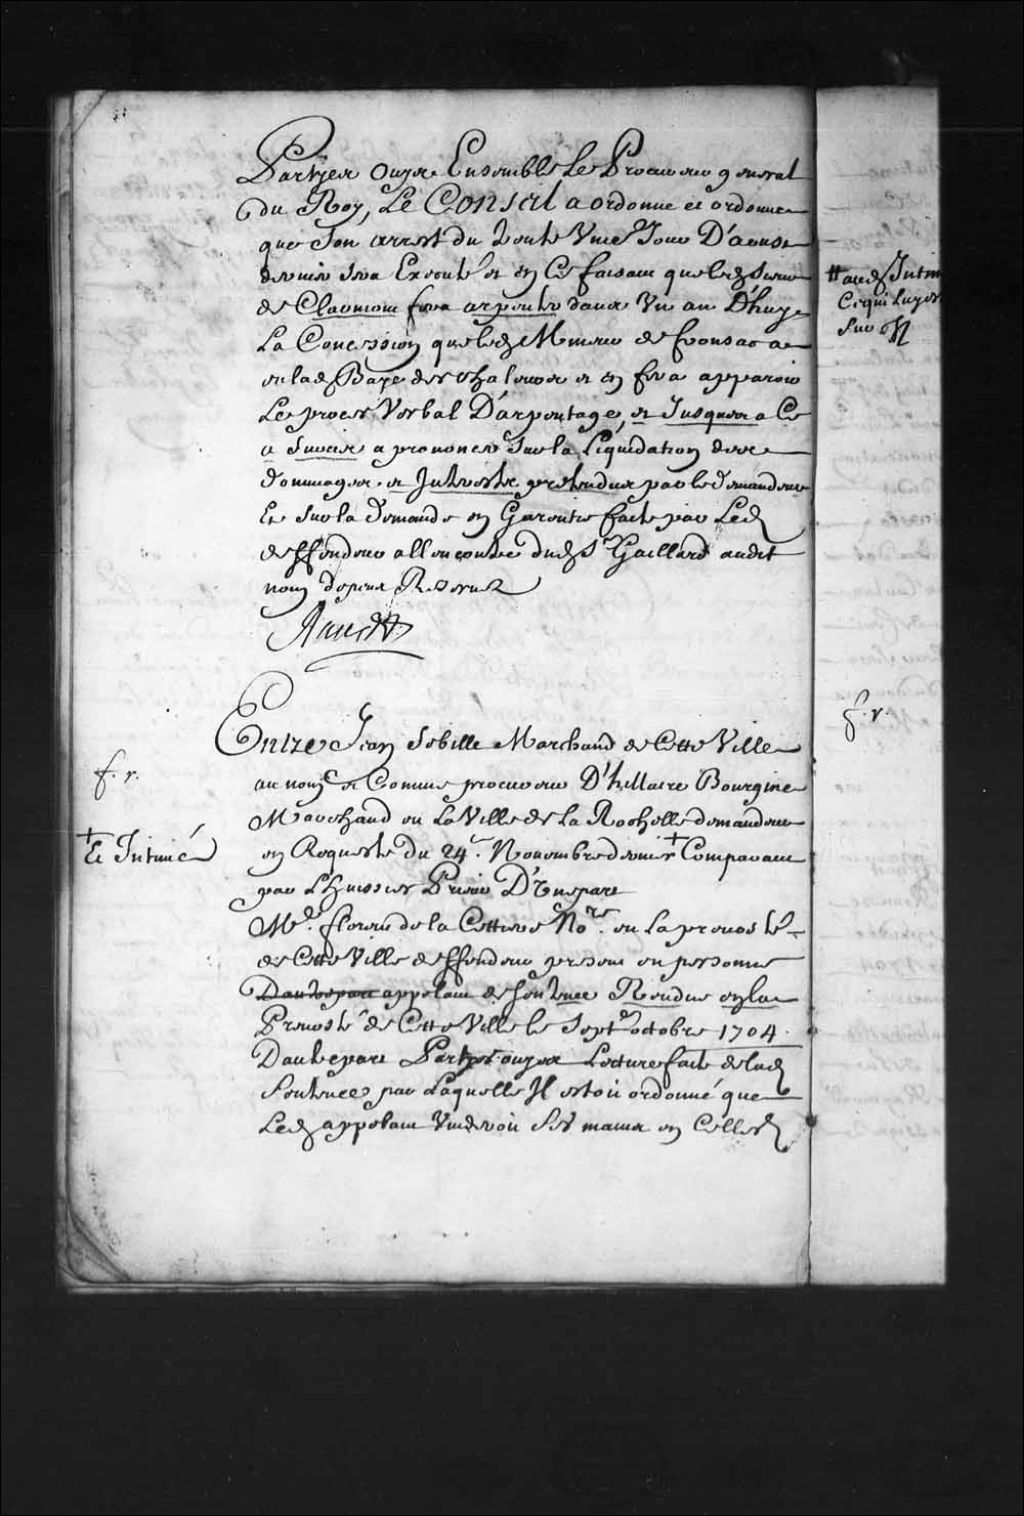 Partyes ouyes Ensemble Le Procureur general
du Roy, Le Conseil a ordonné et ordonne
que Son arrest du trente Vnie Jour D'aoust
dernier sera Executé et en Ce faisant que led Sieur
de Clermont fera arpenter dans Vn an D'huy
La Concession que led Mineur de fronsac a
en lad Baye des Chaleurs et en fera apparoir
Le proces Verbal D'arpentage, et Jusques a Ce
a Surcis a prononcer Sur la Liquidation des
dommages et Interests pretendus par le demandeur
Et Sur la demande en Garentie faite par Led
deffendeur allencontre dud Sr Gaillard audit
nom depens Reservez
Entre Jean Sebille Marchand de Cette Ville
au nom et Comme procureur D'hillaire Bourgine
Marchand en La Ville de La Rochelle demandeur
en Requeste du 24e. Novembre dernier + Comparant
par L'huissier Prieur D'Vnepart
Me. florent de la Cettiere Nore. en La prevosté
de Cette Ville deffendeur present en personne
Dautrepart appelant de Sentence Rendue en la
Prevosté de Cette Ville le Sept octobre 1704.
Dautrepart Partyes ouyes Lecture faite de lad
Sentence par Laquelle Il estoit ordonné que
Led appelant Vuideroit Ses mains en Celles d
f. r.
+
Et Intimé
f. r.